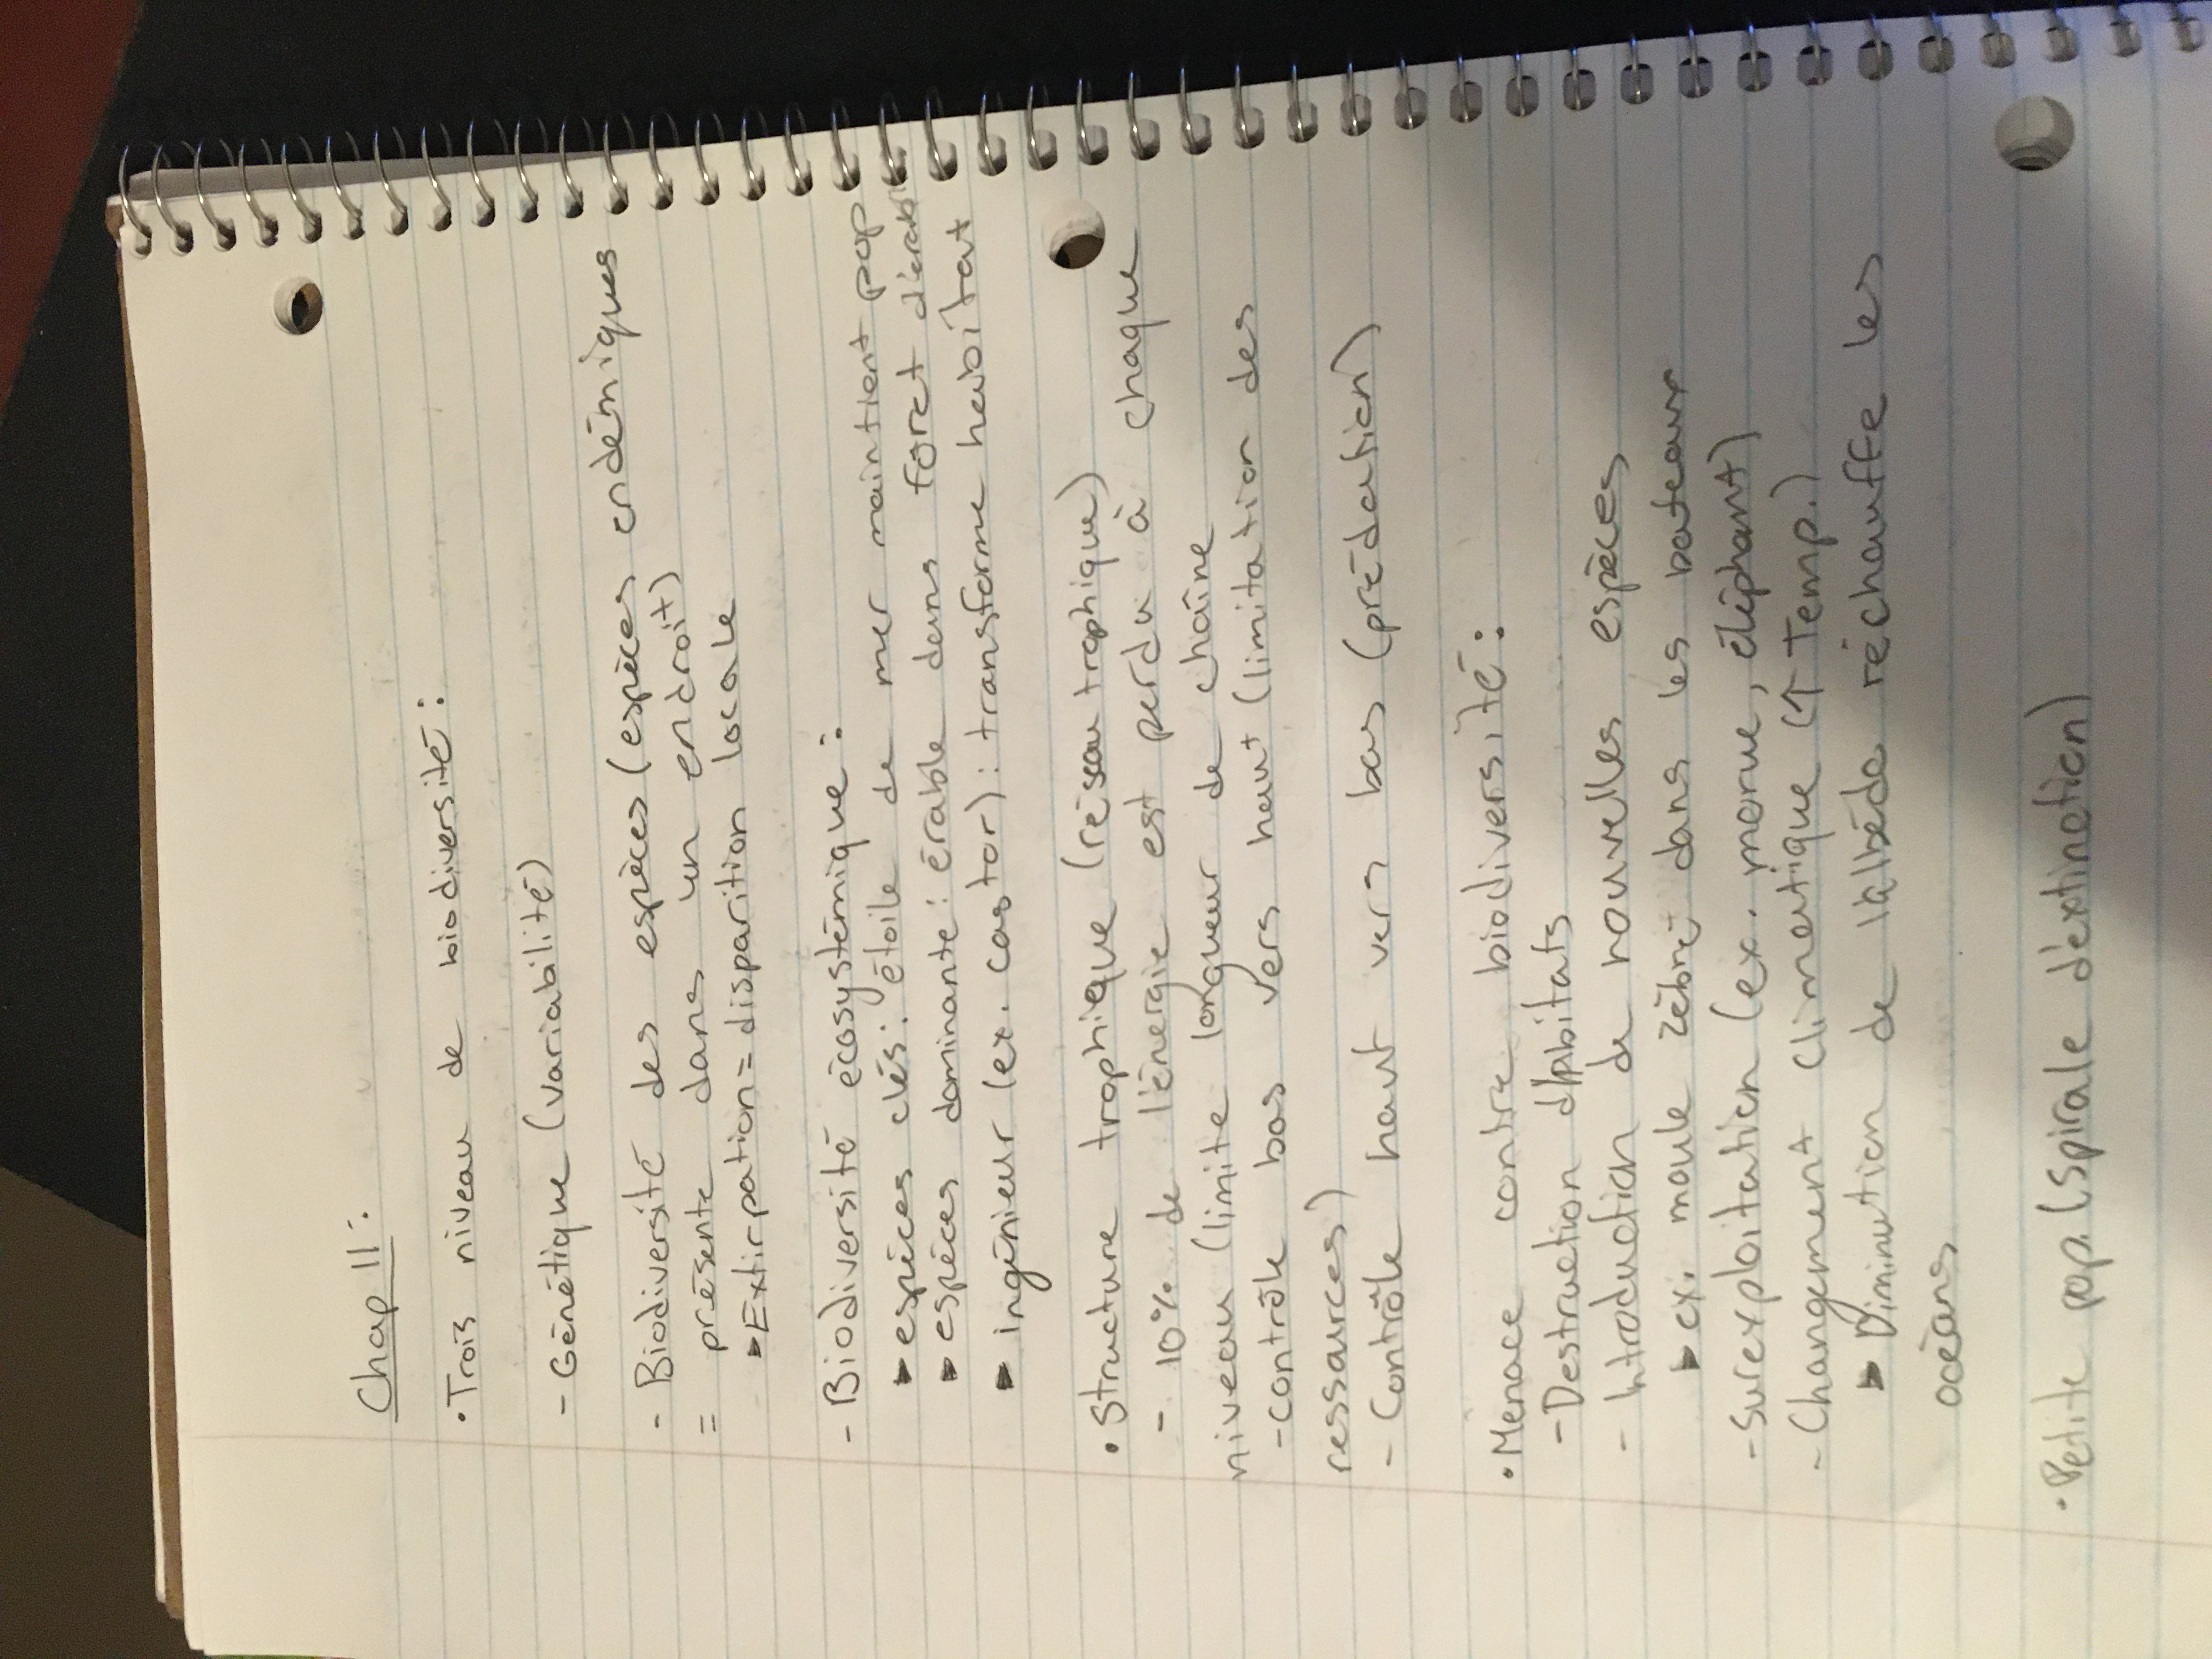 Chap 11:
• Trois niveau de biodiversité:
- Génétique (variabilité)
- Biodiversité des espèces (espèces endémiques
= présente dans un endroit)
► Extirpation = disparition locale
- Biodiversité écosystémique:
► espèces clés: étoile de mer maintient pop
► espèces dominante: érable dans forêt d'érabl
► ingénieur (ex. castor): transforme habitat
• Structure trophique (réseau trophique)
- 10% de l'énergie est perdu à chaque
niveau (limite longueur de chaîne
- contrôle bas vers haut (limitation des
ressources)
- Contrôle haut vers bas (prédation)
• Menace contre biodiversité:
- Destruction d'habitats
- Introduction de nouvelles espèces
► ex. moule zébré dans les bateaux
- Surexploitation (ex. morue, éléphant)
- Changement climatique (↑ temp.)
► Diminution de l'albédo réchauffe les
océans
• Petite pop. (spirale d'extinction)